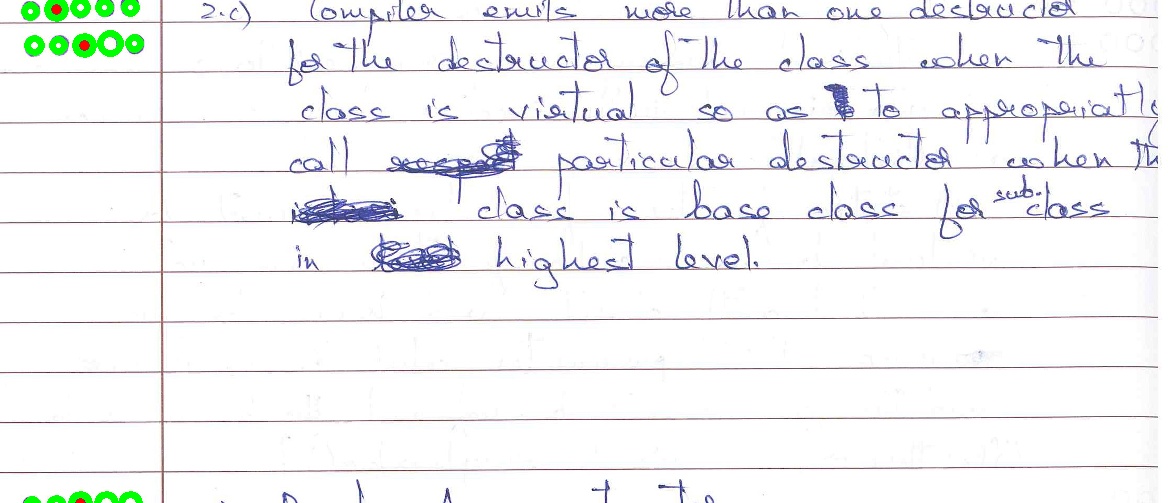 2.c) Compiler emits more than one destructor
for the destructor of the class when the
class is virtual so as to appropriatly
call particular destructor when th
class is base class for sub-class
in highest level.